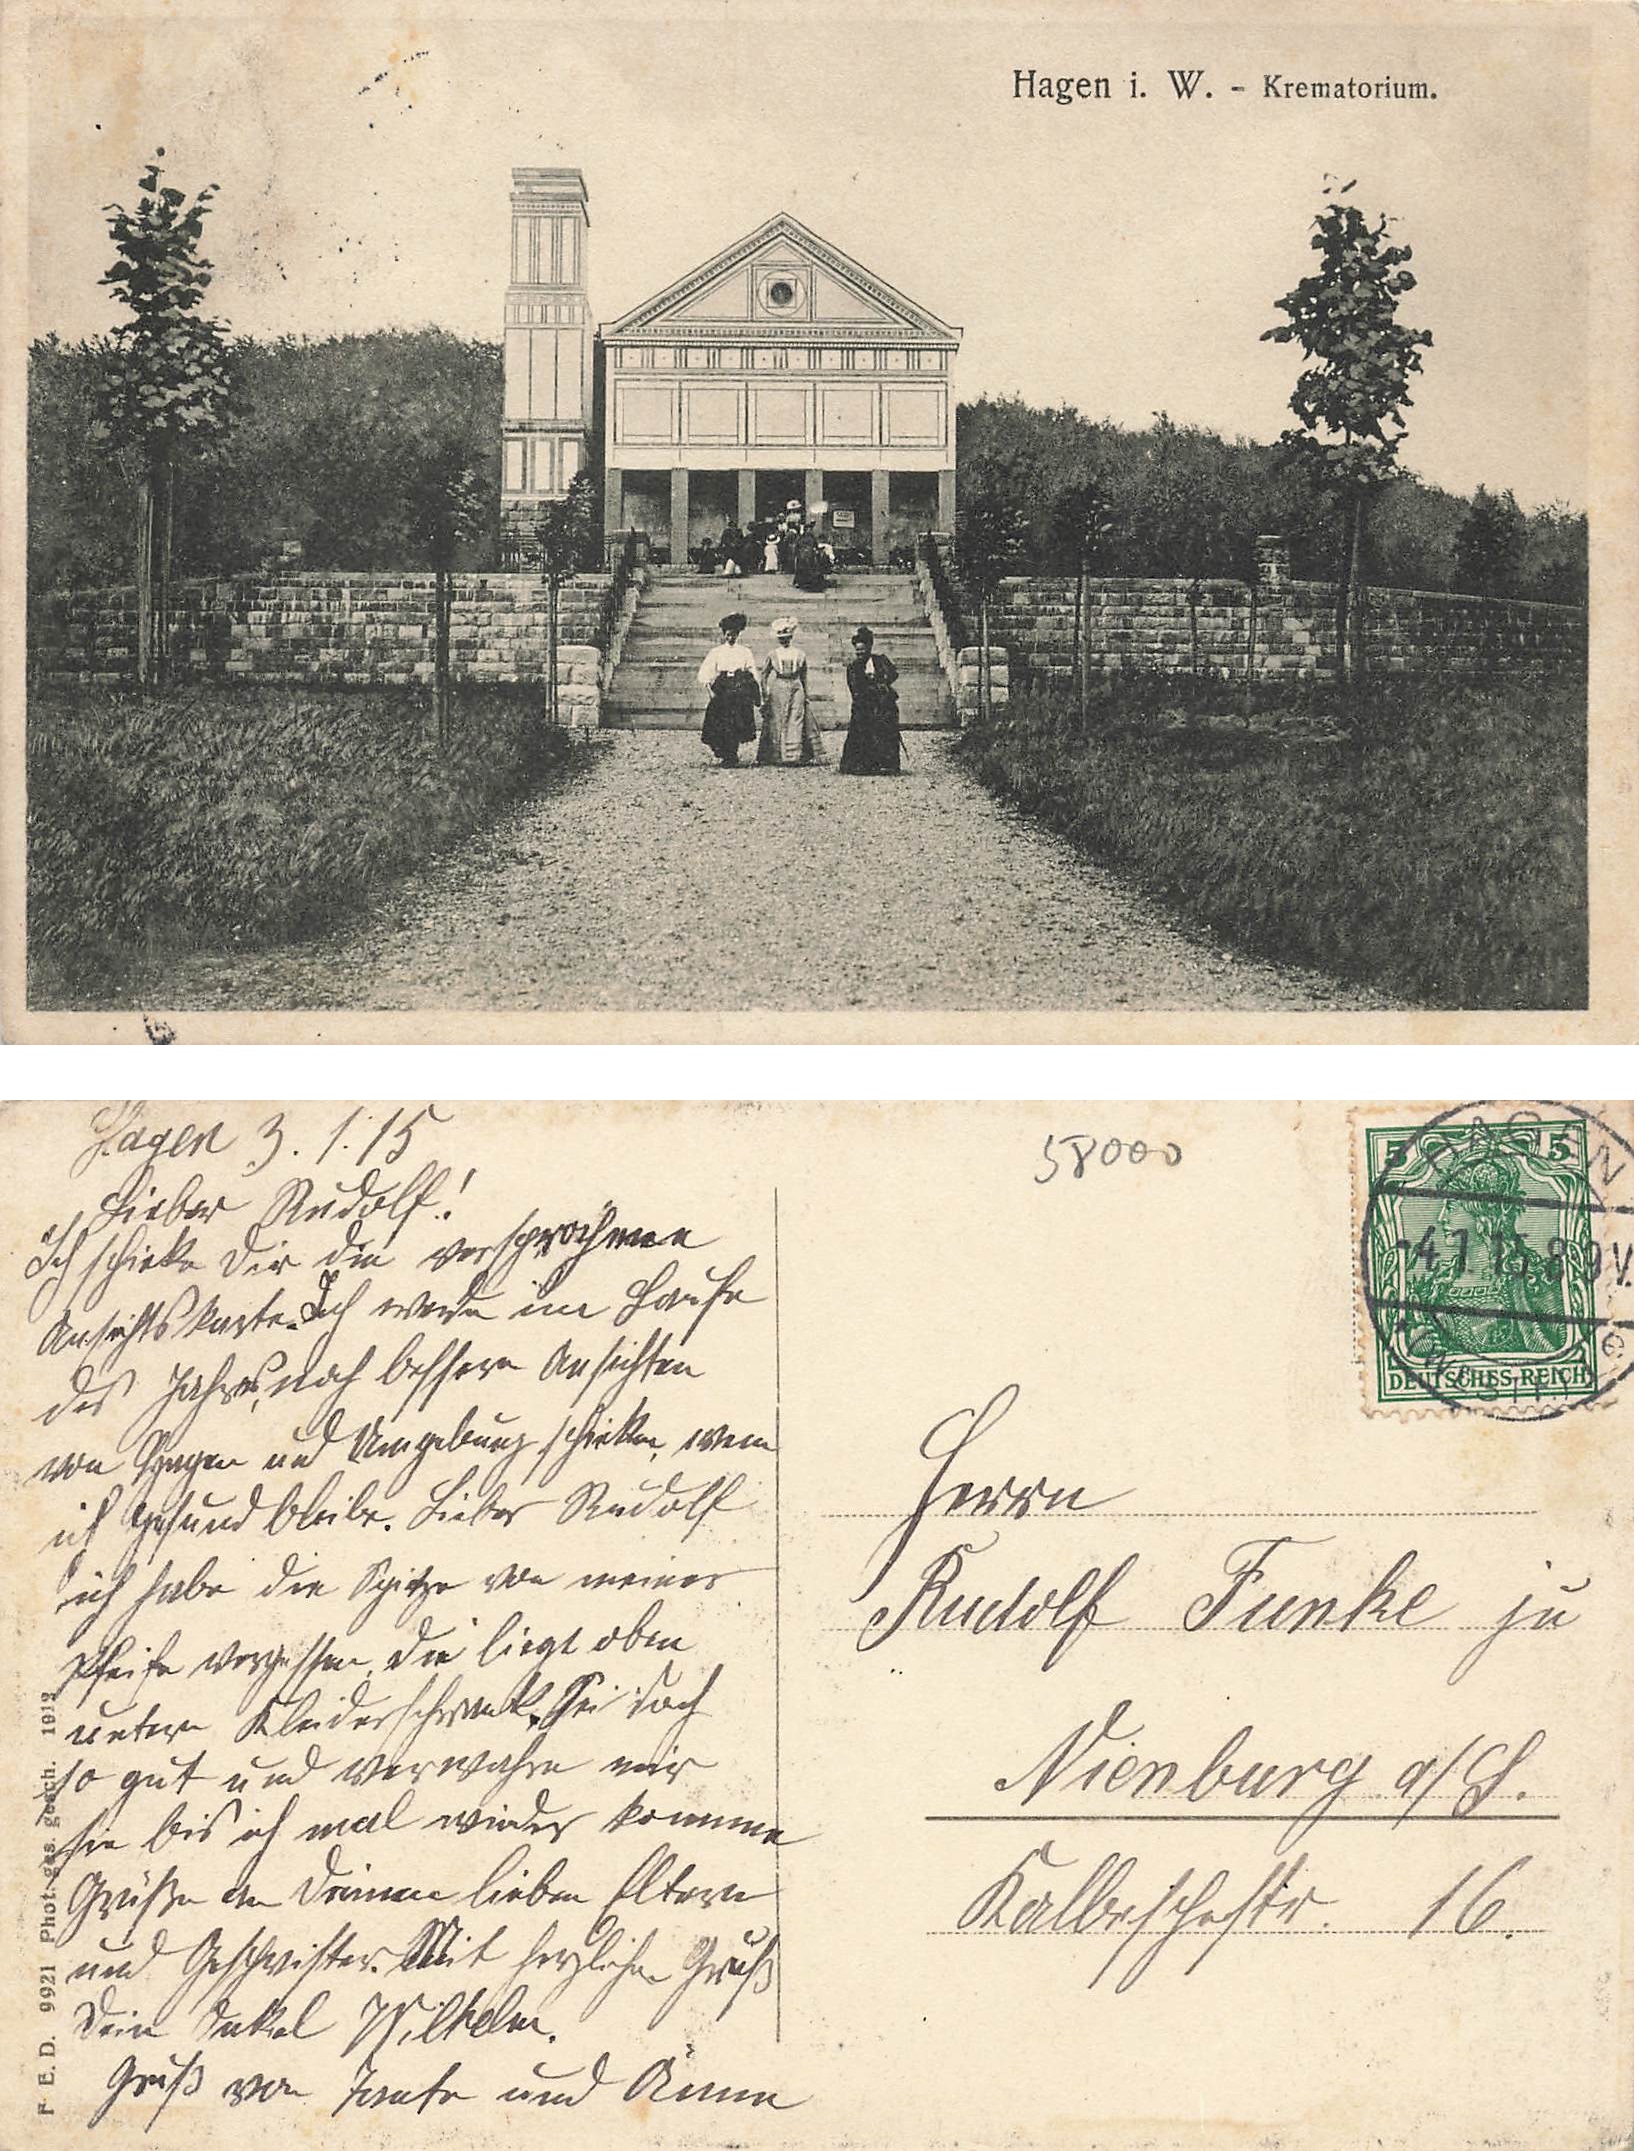 Hagen i. W. - Krematorium.
Hagen 3. 1. 15
Lieber Rudolf!
Ich schicke Dir die versprochene
Ansichtskarte. Ich werde im Laufe
des Jahres, noch bessere Ansichten
von Hagen und Umgebung schicken, wenn
ich gesund bleibe. Lieber Rudolf
ich habe die Spitze von meiner
Pfeife vergessen, die liegt oben
unterm Kleiderschrank. Sei doch
so gut und verwahre mir
sie bis ich mal wieder komme
Grüße an Deinen lieben Eltern
und Geschwister. Mit herzlichen Gruß
Dein Onkel Wilhelm.
Gruß von Tante und Änne
F. E. D. 9921 Phot. ges. gesch. 1913
58000
5 5
DEUTSCHES REICH
HAGEN
-4.1.15.8-9V.
* (WESTF.) *
e
Herrn
Rudolf Funke zu
Nienburg a/S.
Kalbeschestr. 16.